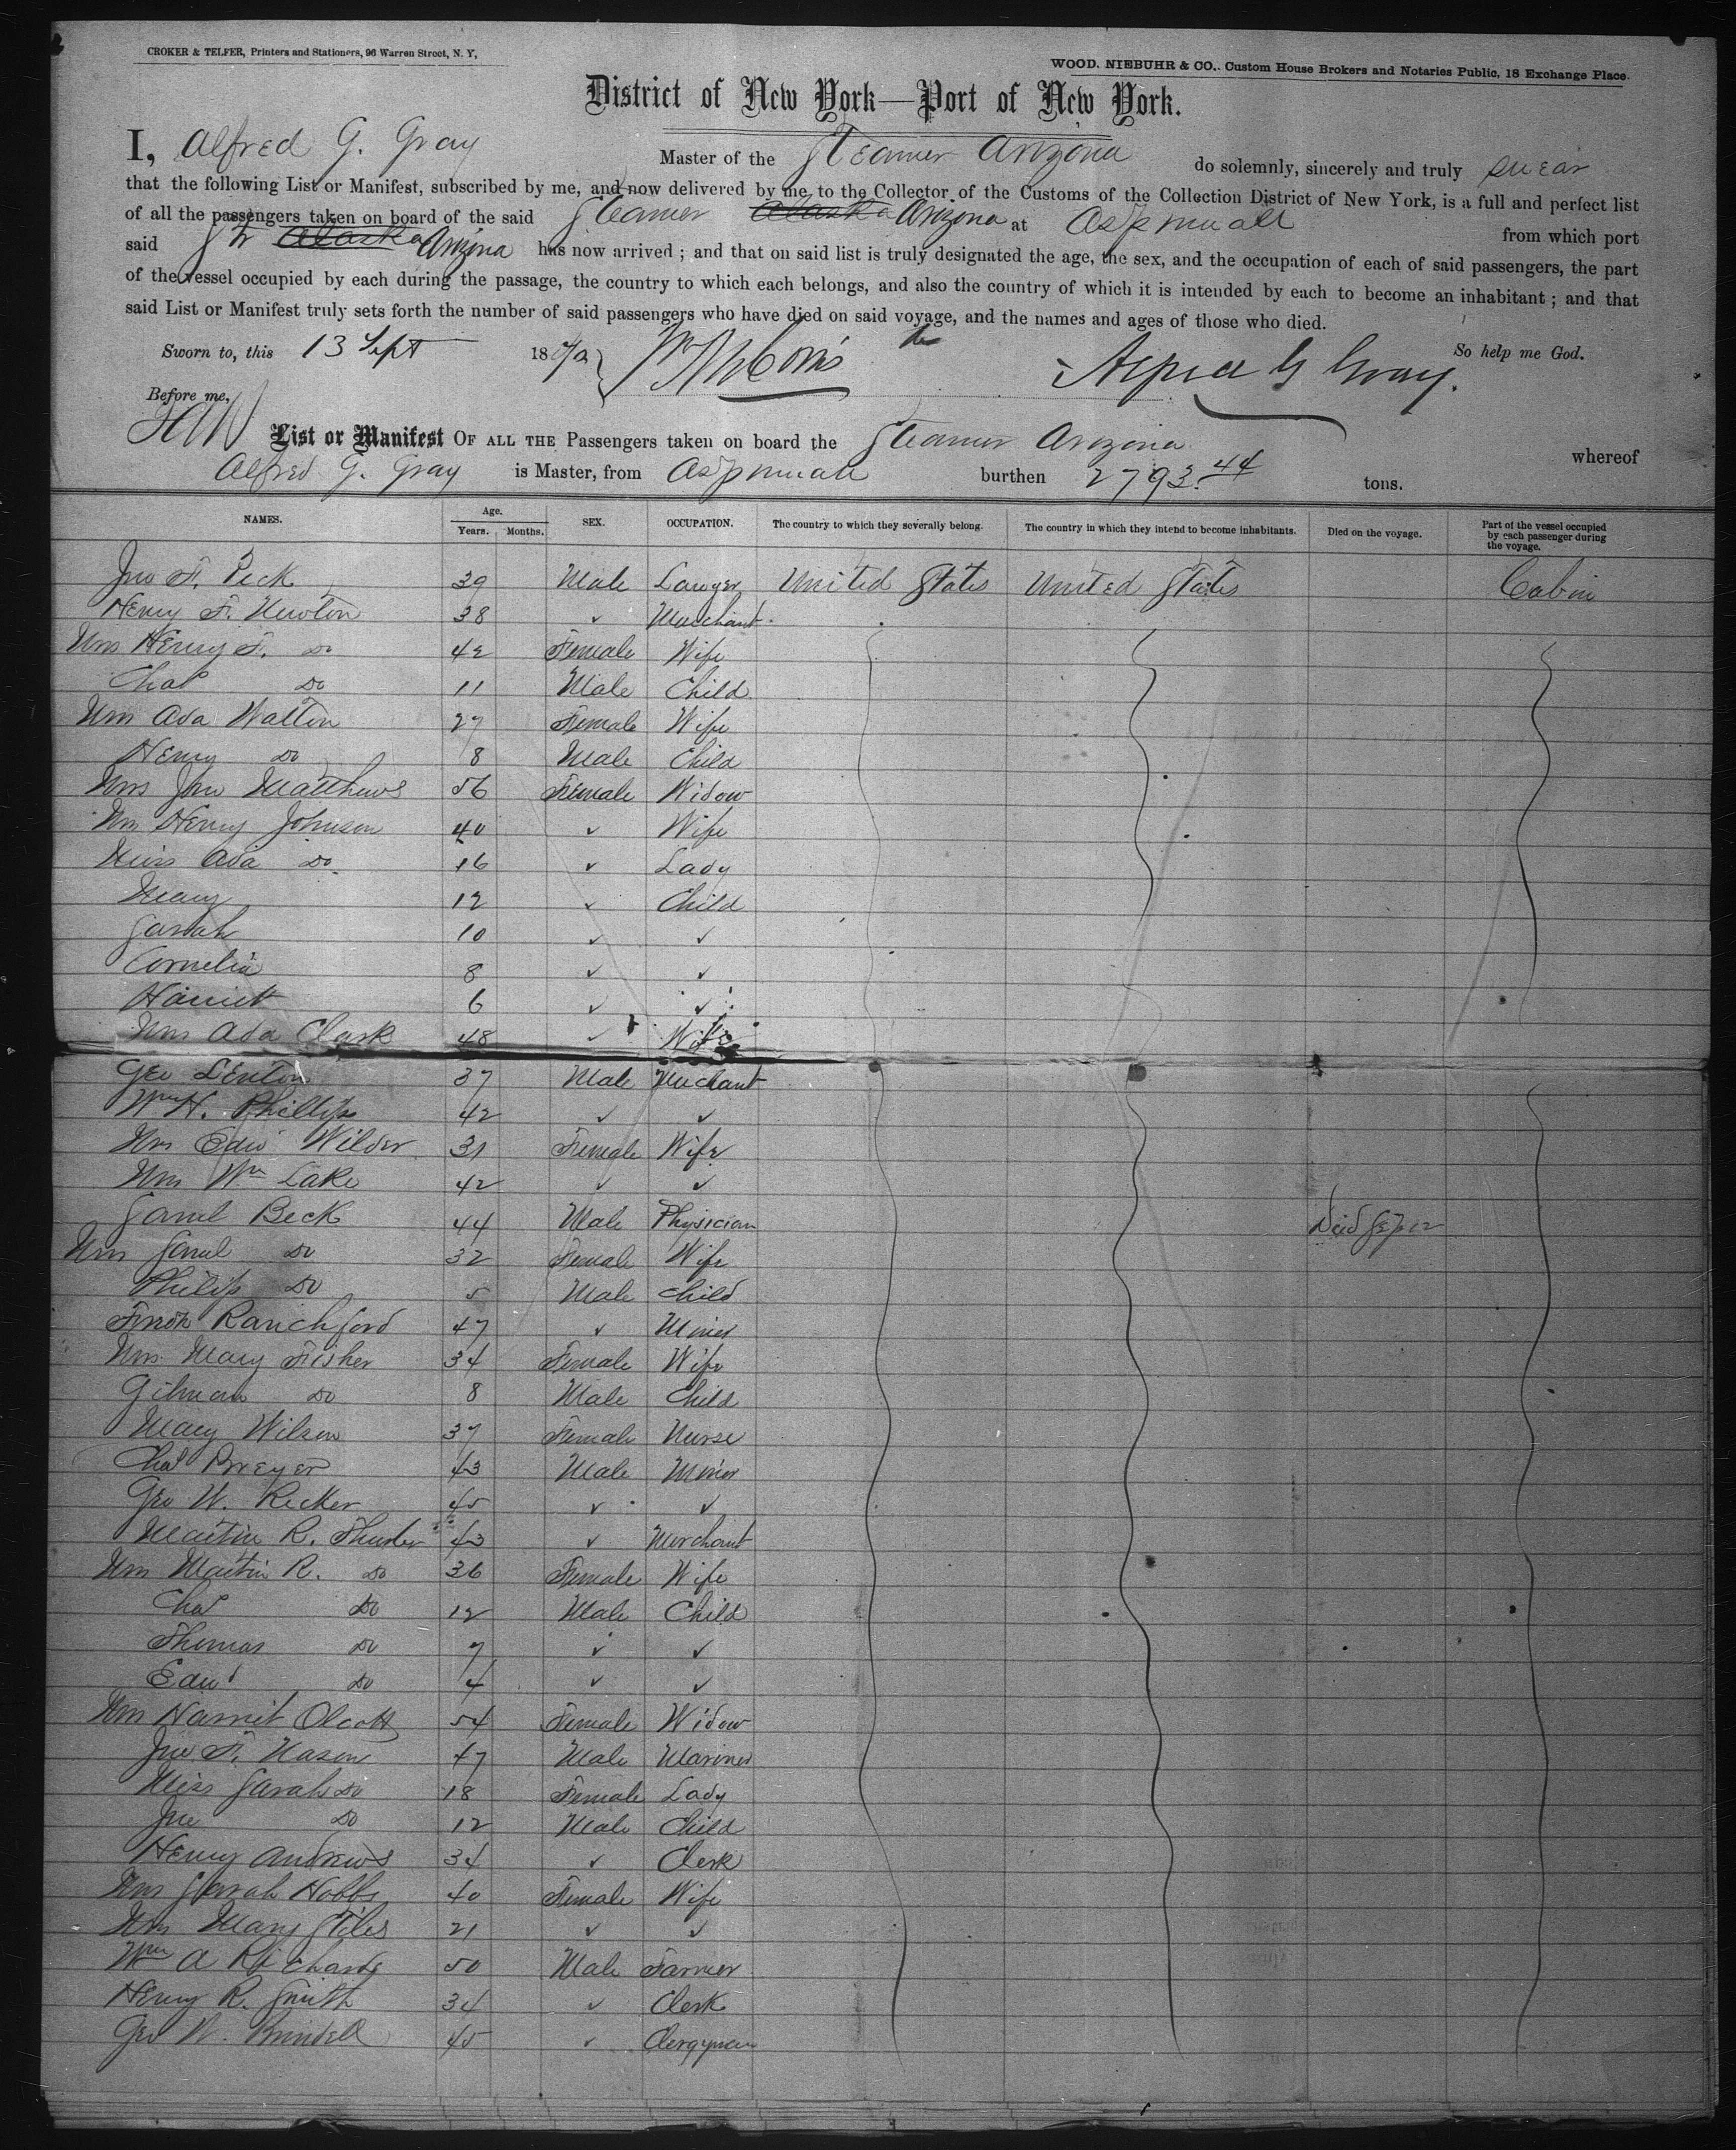 CROKER & TELFER, Printers and Stationers, 96 Warren Street, N. Y,
WOOD, NIEBUHR & CO., Custom House Brokers and Notaries Public, 18 Exchange Place.
District of New York—Port of New York.
I, Alfred G. Gray Master of the Steamer Arizona do solemnly, sincerely and truly swear
that the following List or Manifest, subscribed by me, and now delivered by me to the Collector of the Customs of the Collection District of New York, is a full and perfect list
of all the passengers taken on board of the said Steamer Alaska Arizona at Aspinwall from which port
said Str Alaska Arizona has now arrived ; and that on said list is truly designated the age, the sex, and the occupation of each of said passengers, the part
of the vessel occupied by each during the passage, the country to which each belongs, and also the country of which it is intended by each to become an inhabitant ; and that
said List or Manifest truly sets forth the number of said passengers who have died on said voyage, and the names and ages of those who died.
So help me God.
Sworn to, this 13 Sept 18 Alfred G Gray.
Before me,
List or Manifest OF ALL THE Passengers taken on board the Steamer Arizona whereof
Alfred G. Gray is Master, from Aspinwall burthen 2793.44 tons.
NAMES. Age. Years. Months. SEX. OCCUPATION. The country to which they severally belong. The country in which they intend to become inhabitants. Died on the voyage. Part of the vessel occupied by each passenger during the voyage.
Jno F. Peck 39 Male Lawyer United States United States Cabin
Henry F. Newton 38 ✓ Merchant
Mrs Henry F. Do 42 Female Wife
Chas Do 11 Male Child
Mrs Ada Walton 27 Female Wife
Henry Do 8 Male Child
Mrs Jno Matthews 56 Female Widow
Mrs Henry Johnson 40 ✓ Wife
Miss Ada Do 16 ✓ Lady
Mary 12 ✓ Child
Sarah 10 ✓ ✓
Cornelia 8 ✓ ✓
Harriet 6 ✓ ✓
Mrs Ada Clark 48 ✓ Wife
Geo Lenton 37 Male Merchant
Wm H. Phillips 42 ✓ ✓
Mrs Edwd Wilder 31 Female Wife
Mrs Wm Lake 42 ✓ ✓
Saml Beck 44 Male Physician Died Sep 12
Mrs Saml Do 32 Female Wife
Philip Do 5 Male Child
Ranchford 47 ✓ Miner
Mrs Mary Fisher 34 Female Wife
Gilman Do 8 Male Child
Mary Wilson 37 Female Nurse
Chas Breyer 43 Male Miner
Geo W. Recker 45 ✓ ✓
Martin R. 43 ✓ Merchant
Mrs Martin R. Do 36 Female Wife
Chas Do 12 Male Child
Thomas Do 7 ✓ ✓
Edwd Do 4 ✓ ✓
Mrs Harriet Olcott 54 Female Widow
Jno F. Nason 47 Male Mariner
Miss Sarah Do 18 Female Lady
Jno Do 12 Male Child
Henry Andrews 34 ✓ Clerk
Mrs Sarah Hobbs 40 Female Wife
Mrs Mary Stiles 21 ✓ ✓
Wm A Richards 50 Male Farmer
Henry R. Smith 34 ✓ Clerk
Geo W. Brindell 45 ✓ Clergyman